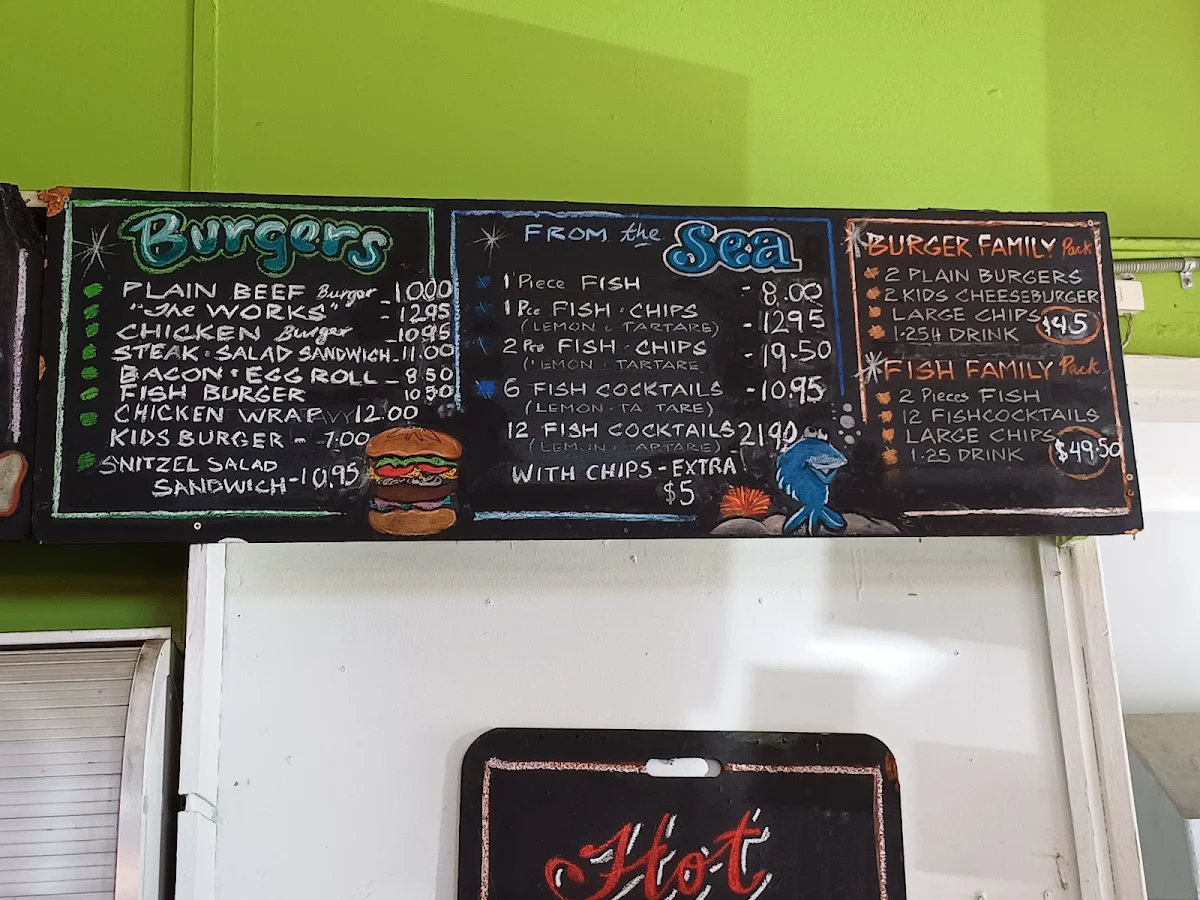 Burgers
PLAIN BEEF Burger - 10.00
"The WORKS" - 12.95
CHICKEN Burger - 10.95
STEAK & SALAD SANDWICH - 11.00
BACON & EGG ROLL - 8.50
FISH BURGER 10.50
CHICKEN WRAP 12.00
KIDS BURGER - 7.00
SNITZEL SALAD
SANDWICH - 10.95
FROM the Sea
1 Piece FISH - 8.00
1 Pce FISH & CHIPS - 12.95
(LEMON & TARTARE)
2 Pce FISH & CHIPS - 19.50
(LEMON & TARTARE)
6 FISH COCKTAILS - 10.95
(LEMON & TARTARE)
12 FISH COCKTAILS 21.90
(LEMON & TARTARE)
WITH CHIPS - EXTRA
$5
BURGER FAMILY Pack
2 PLAIN BURGERS
2 KIDS CHEESEBURGER
LARGE CHIPS
1.25L DRINK
$45
FISH FAMILY Pack
2 Pieces FISH
12 FISHCOCKTAILS
LARGE CHIPS
1.25 DRINK
$49.50
Hot